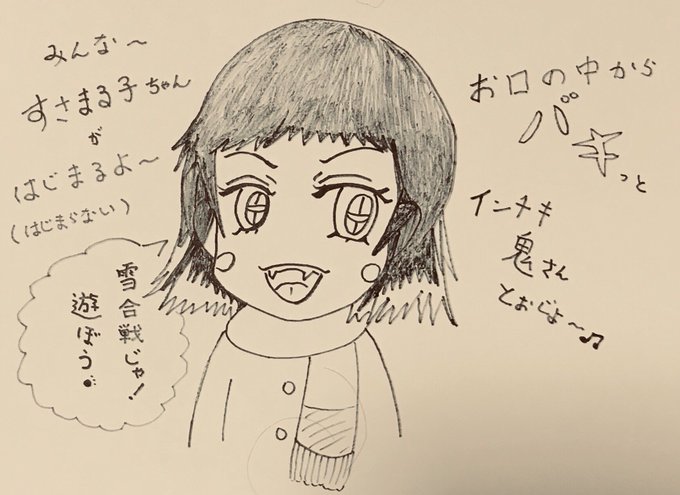 みんな～
すさまる子ちゃん
が
はじまるよ～
(はじまらない)
雪合戦じゃ!
遊ぼう。
お口の中から
バキっと
インチキ
鬼さん
とおじょ～♫